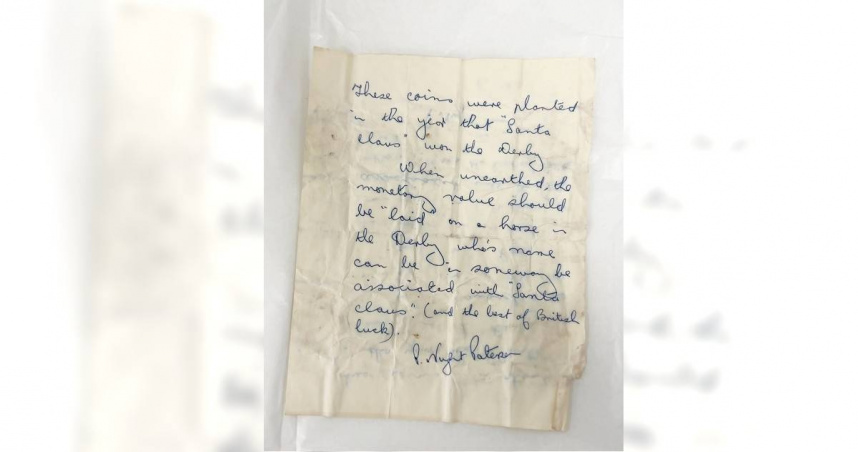 These coins were planted
in the year that "Santa
Claus" won the Derby
When unearthed, the
monetary value should
be "laid" on a horse in
the Derby who's name
can be in someway be
associated with "Santa
Claus". (and the best of British
luck).
P. Nugent Paterson